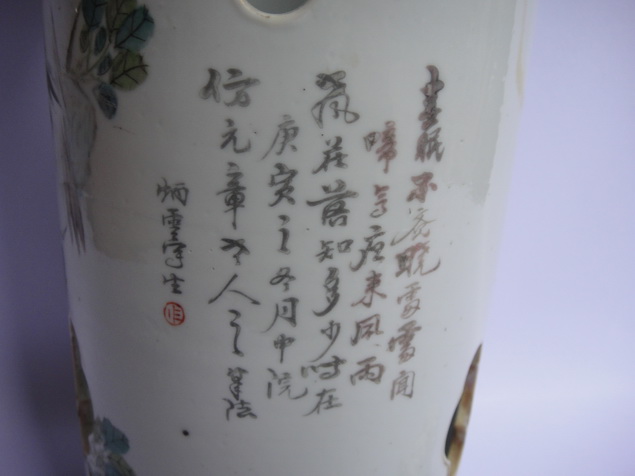 春眠不覺曉處處聞
啼鳥夜来風雨
聲花落知多少时在
庚寅之冬月中浣
仿元章老人之筆法
炳雲寫生